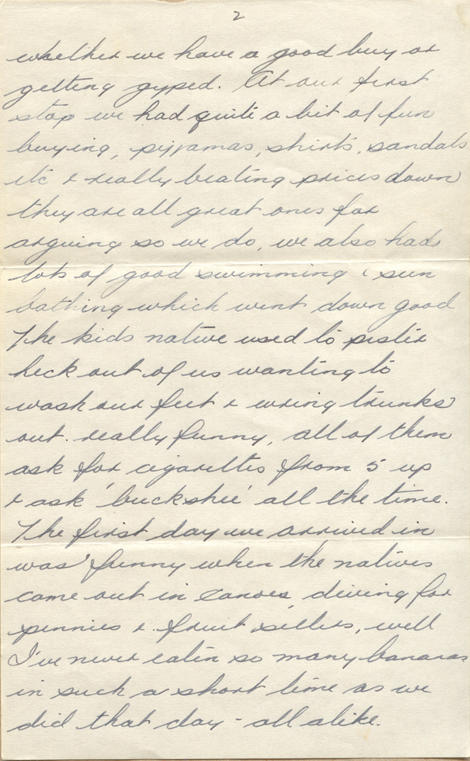 2
whether we have a good buy or
getting gyped. At our first
stop we had quite a bit of fun
buying, pyjamas, shirts, sandals
etc & really beating prices down
they are all great ones for
arguing so we do, we also had
lots of good swimming & sun
bathing which went down good
The kids native used to pester
heck out of us wanting to
wash our feet & wring trunks
out. really funny, all of them
ask for cigarettes from 5 up
& ask 'buckshee' all the time.
The first day we arrived in
was funny when the natives
came out in canoes, diving for
pennies & fruit sellers, well
I've never eaten so many bananas
in such a short time as we
did that day - all alike.